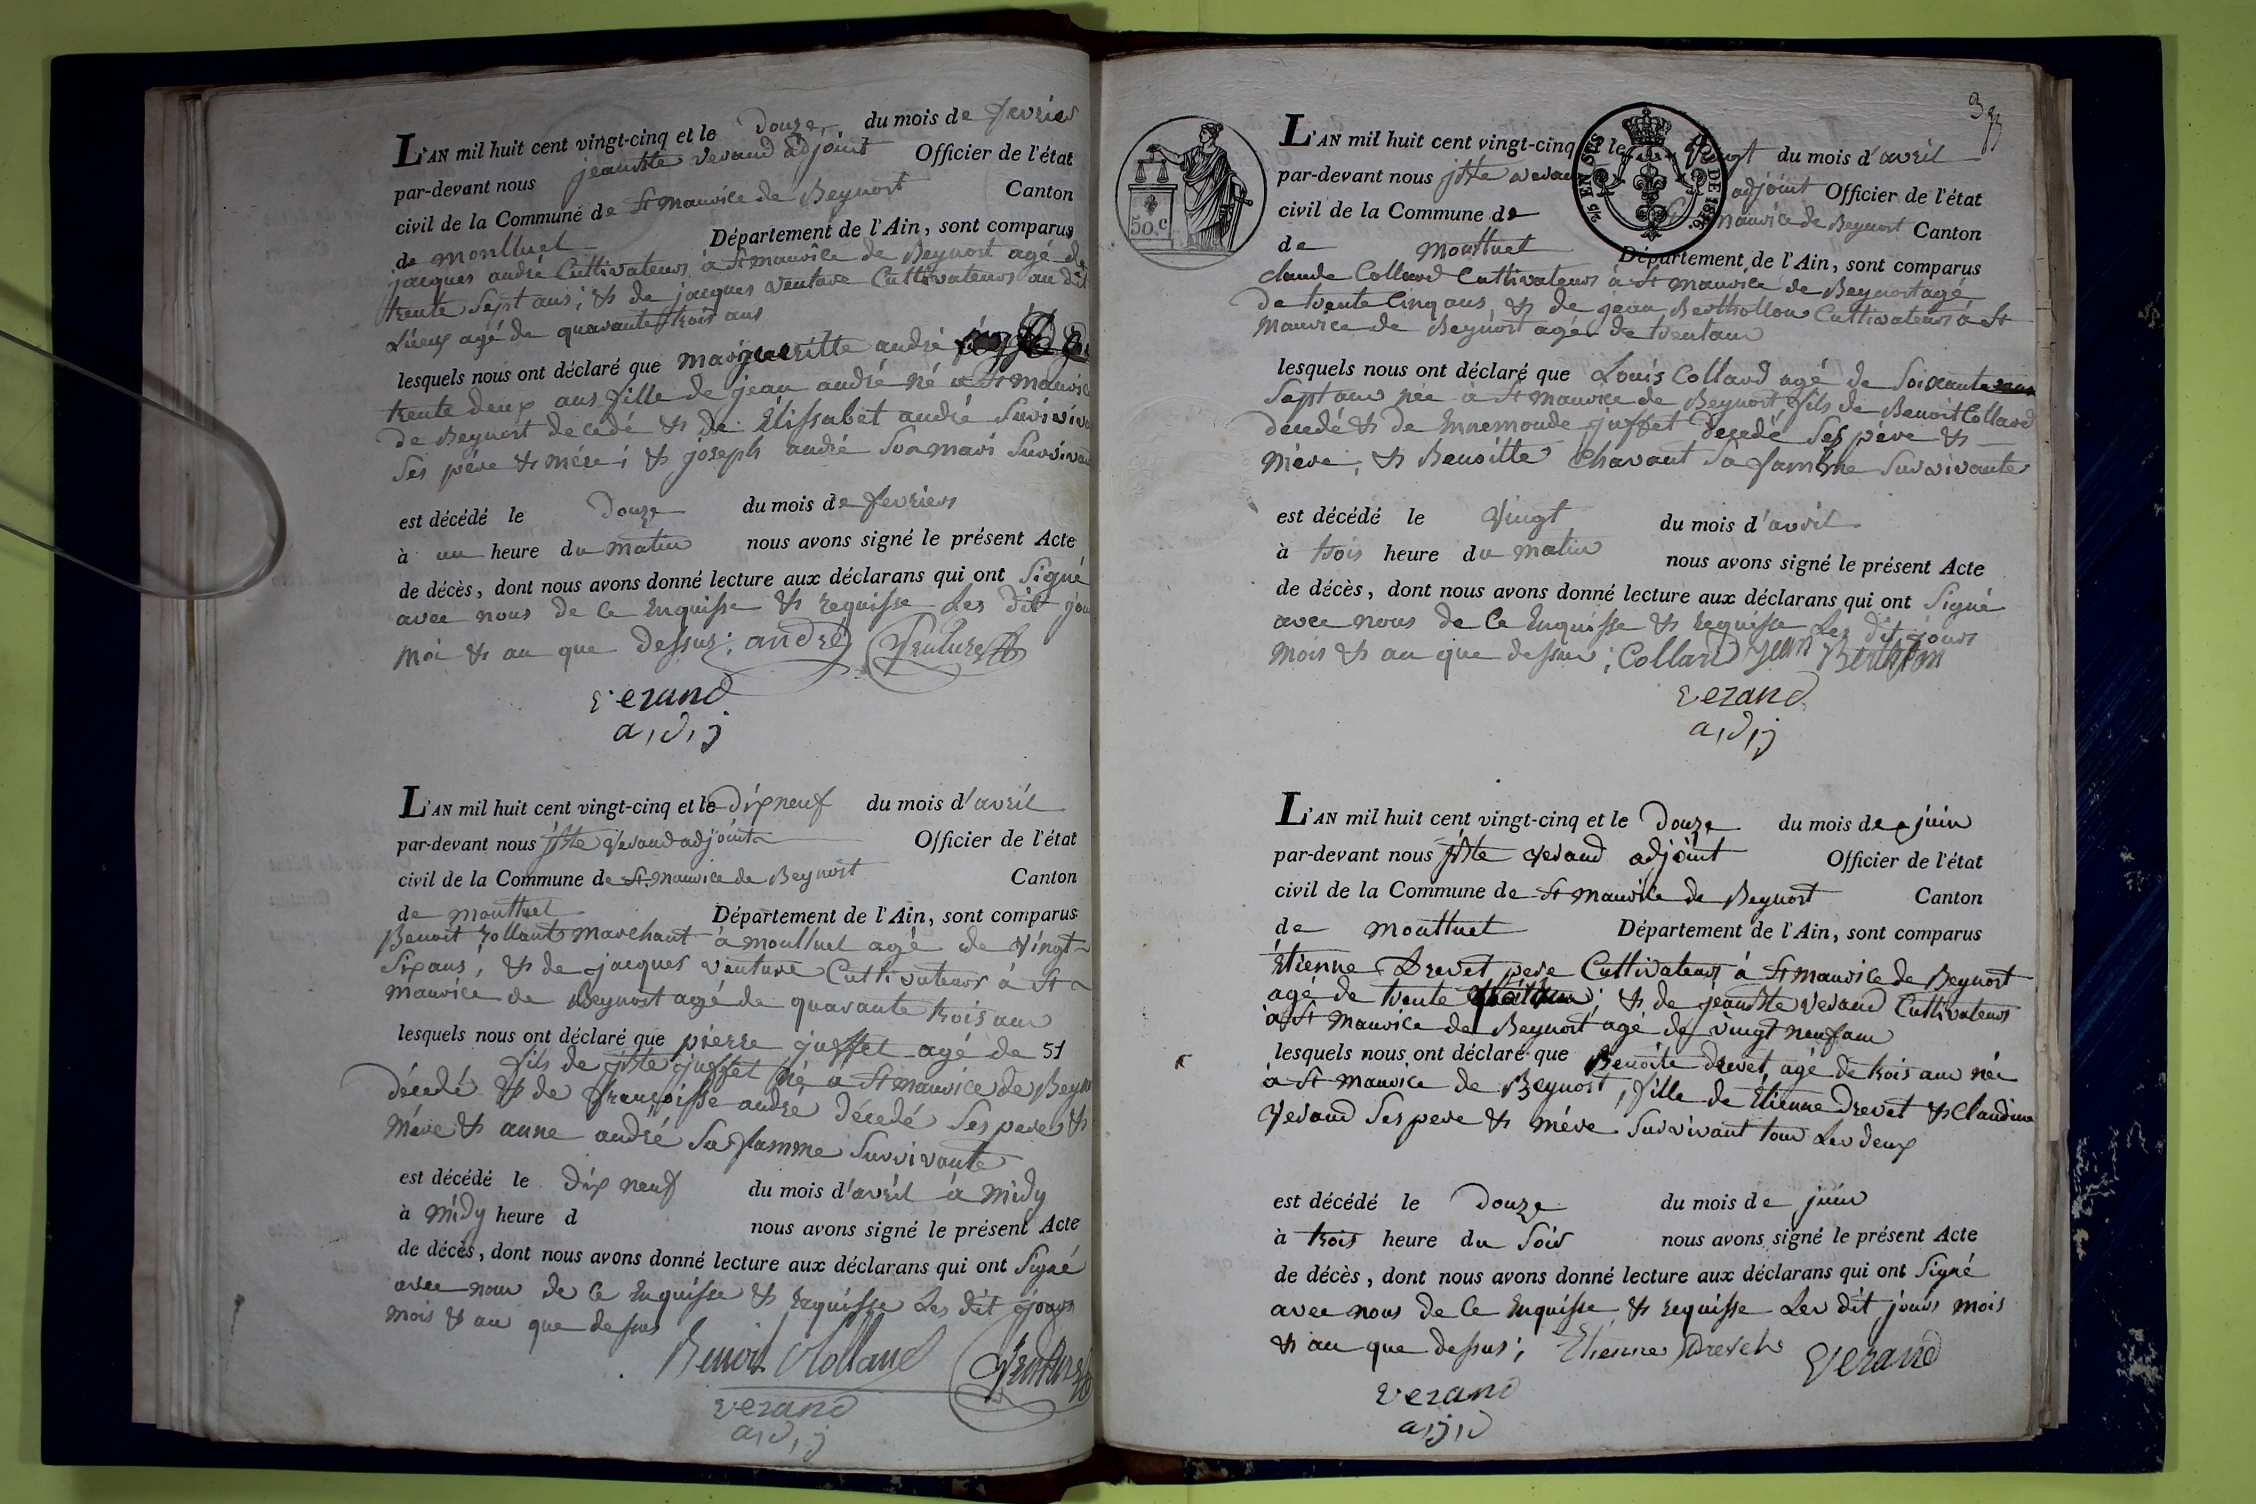 L'AN mil huit cent vingt-cinq et le douze du mois de fevrier
par-devant nous jean Bte verand adjoint Officier de l'état
civil de la Commune de St maurice de Beynost Canton
de montluel Département de l'Ain, sont comparus
jacques andré Cultivateur à St maurice de Beynost agé de
trente Sept ans; & de jacques venture Cultivateur au dit
Lieux agé de quarante trois ans
lesquels nous ont déclaré que margueritte andré
trente deux ans fille de jean andré né a St maurice
de Beynost decedé & de Elissabet andré Survivan
Ses père & mére; & joseph andré Son mari Survivan
est décédé le douze du mois de fevrier
à un heure du matin nous avons signé le présent Acte
de décès, dont nous avons donné lecture aux déclarans qui ont Signé
avec nous de Ce Enquisse & requisse Les dit jou
moi & an que dessus; andré Venture
verand
a,d,j
L'AN mil huit cent vingt-cinq et le dix neuf du mois d'avril
par-devant nous jBte verand adjoint Officier de l'état
civil de la Commune de St. maurice de Beynost Canton
de montluel Département de l'Ain, sont comparus
Benoit rollant marchant à montluel agé de vingt
Six ans; & de jacques venture Cultivateur à St
maurice de Beynost agé de quarante trois ans
lesquels nous ont déclaré que pierre juffet agé de 51
fils de jBte juffet né a St maurice de Beyn
décedé & de françoisse andré décedé Ses pere &
Mére & anne andré Sa famme Survivante
est décédé le dix neuf du mois d'avril à midy
à midy heure d nous avons signé le présent Acte
de décès, dont nous avons donné lecture aux déclarans qui ont Signé
avec nous de Ce Enquisse & requisse Les dit jours
mois & an que dessus
Benoit Rolland Venture
verand
a,d,j
3
L'AN mil huit cent vingt-cinq et le vingt du mois d'avril
par-devant nous jBte verand adjoint Officier de l'état
civil de la Commune de St maurice de Beynost Canton
de montluel Département de l'Ain, sont comparus
claude Collard Cultivateur à St maurice de Beynost agé
de trente Cinq ans & de jean Berthollon Cultivateur à St
maurice de Beynost agé de trent ans
lesquels nous ont déclaré que Louis Collard agé de Soixante
Sept ans née à St maurice de Beynost, fils de Benoit Collard
décedé & de Ennemonde juffet decedé Ses père &
Mére; & Benoitte Chavant Sa famme Survivante
est décédé le vingt du mois d'avril
à trois heure du matin nous avons signé le présent Acte
de décès, dont nous avons donné lecture aux déclarans qui ont Signé
avec nous de Ce Enquisse & requisse Les dit jours
mois & an que dessus; Collard jean
verand
a,d,j
50.c
EN SUS
DE 1816.
L'AN mil huit cent vingt-cinq et le douze du mois de juin
par-devant nous jBte verand adjoint Officier de l'état
civil de la Commune de St maurice de Beynost Canton
de montluel Département de l'Ain, sont comparus
Etienne Drevet pere Cultivateur à St maurice de Beynost
agé de trente; & de jean Bte verand Cultivateur
à St maurice de Beynost agé de vingt neuf ans
lesquels nous ont déclaré que Benoite drevet, agé de trois ans née
à St maurice de Beynost, fille de Etienne Drevet & Claudine
verand Ses pere & mére Survivant tous Les deux
est décédé le douze du mois de juin
à trois heure du Soir nous avons signé le présent Acte
de décès, dont nous avons donné lecture aux déclarans qui ont Signé
avec nous de Ce Enquisse & requisse Les dit jours mois
& an que dessus; Etienne Drevet verand
verand
a,j,d